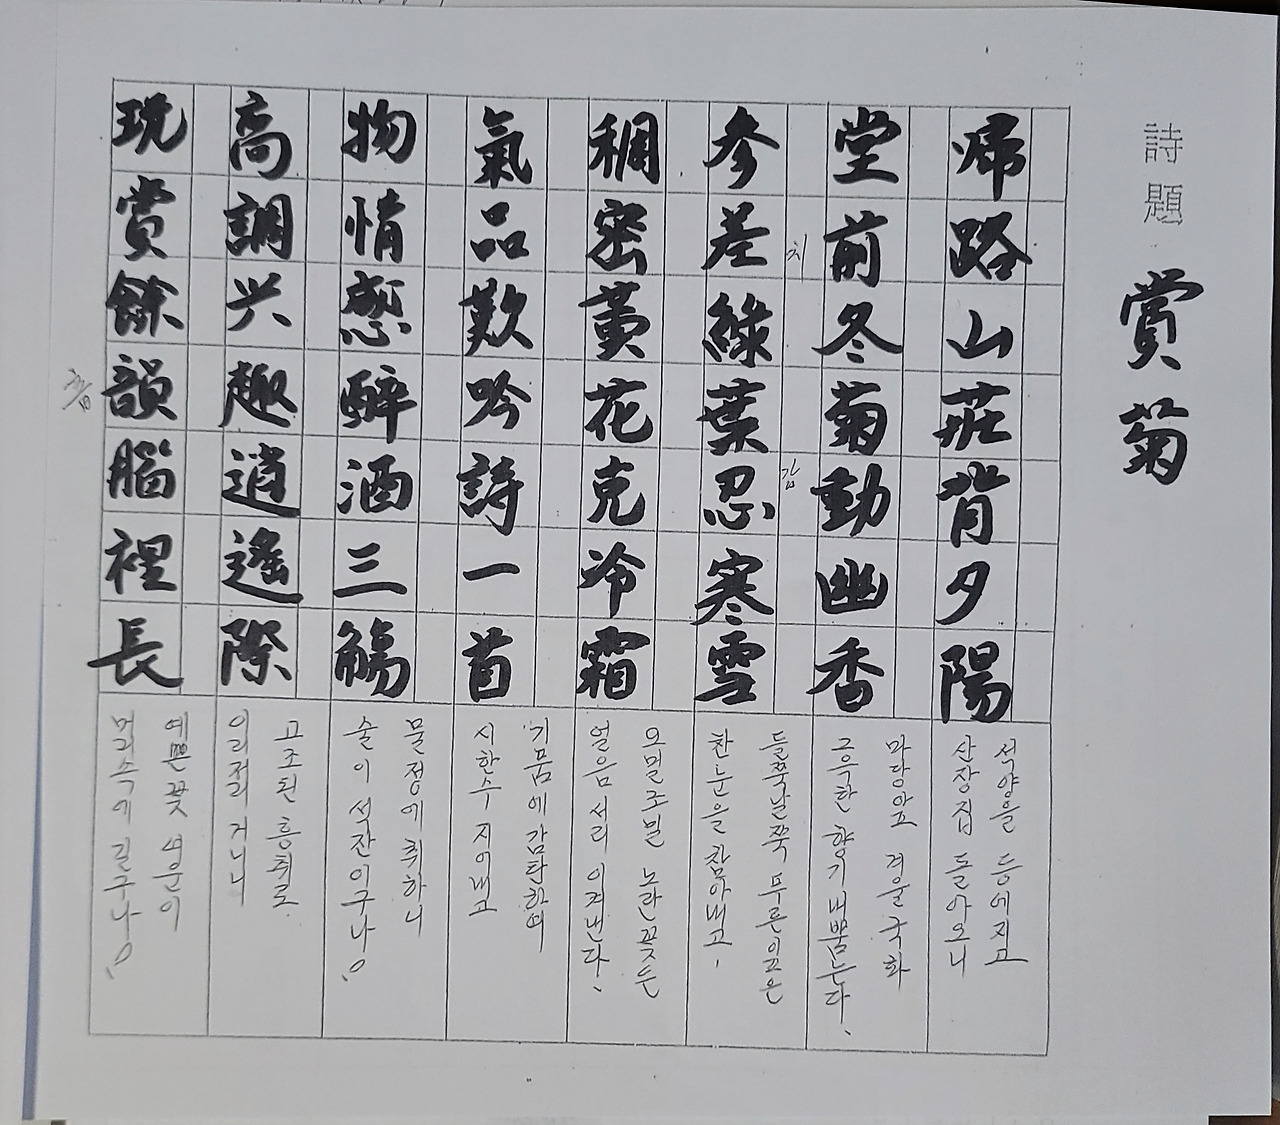 詩題 賞菊
帰路山莊背夕陽
석양을 등에지고
산장집 돌아오니
堂前冬菊動幽香
마당앞 겨울국화
그윽한 향기 내뿜는다.
参差綠葉忍寒雪
치
감
들쭉날쭉 푸른잎은
찬눈을 참아내고,
稠密黃花克冷霜
오밀조밀 노란꽃은
얼음서리 이겨낸다.
氣品歎吟詩一首
기품에 감탄하여
시한수 지어내고
物情感醉酒三觴
물정에 취하니
술이 석잔이구나!
高調兴趣逍遙際
고조된 흥취로
이리저리 거니니
玩賞餘韻腦裡長
예쁜꽃 여운이
머리속에 길구나!